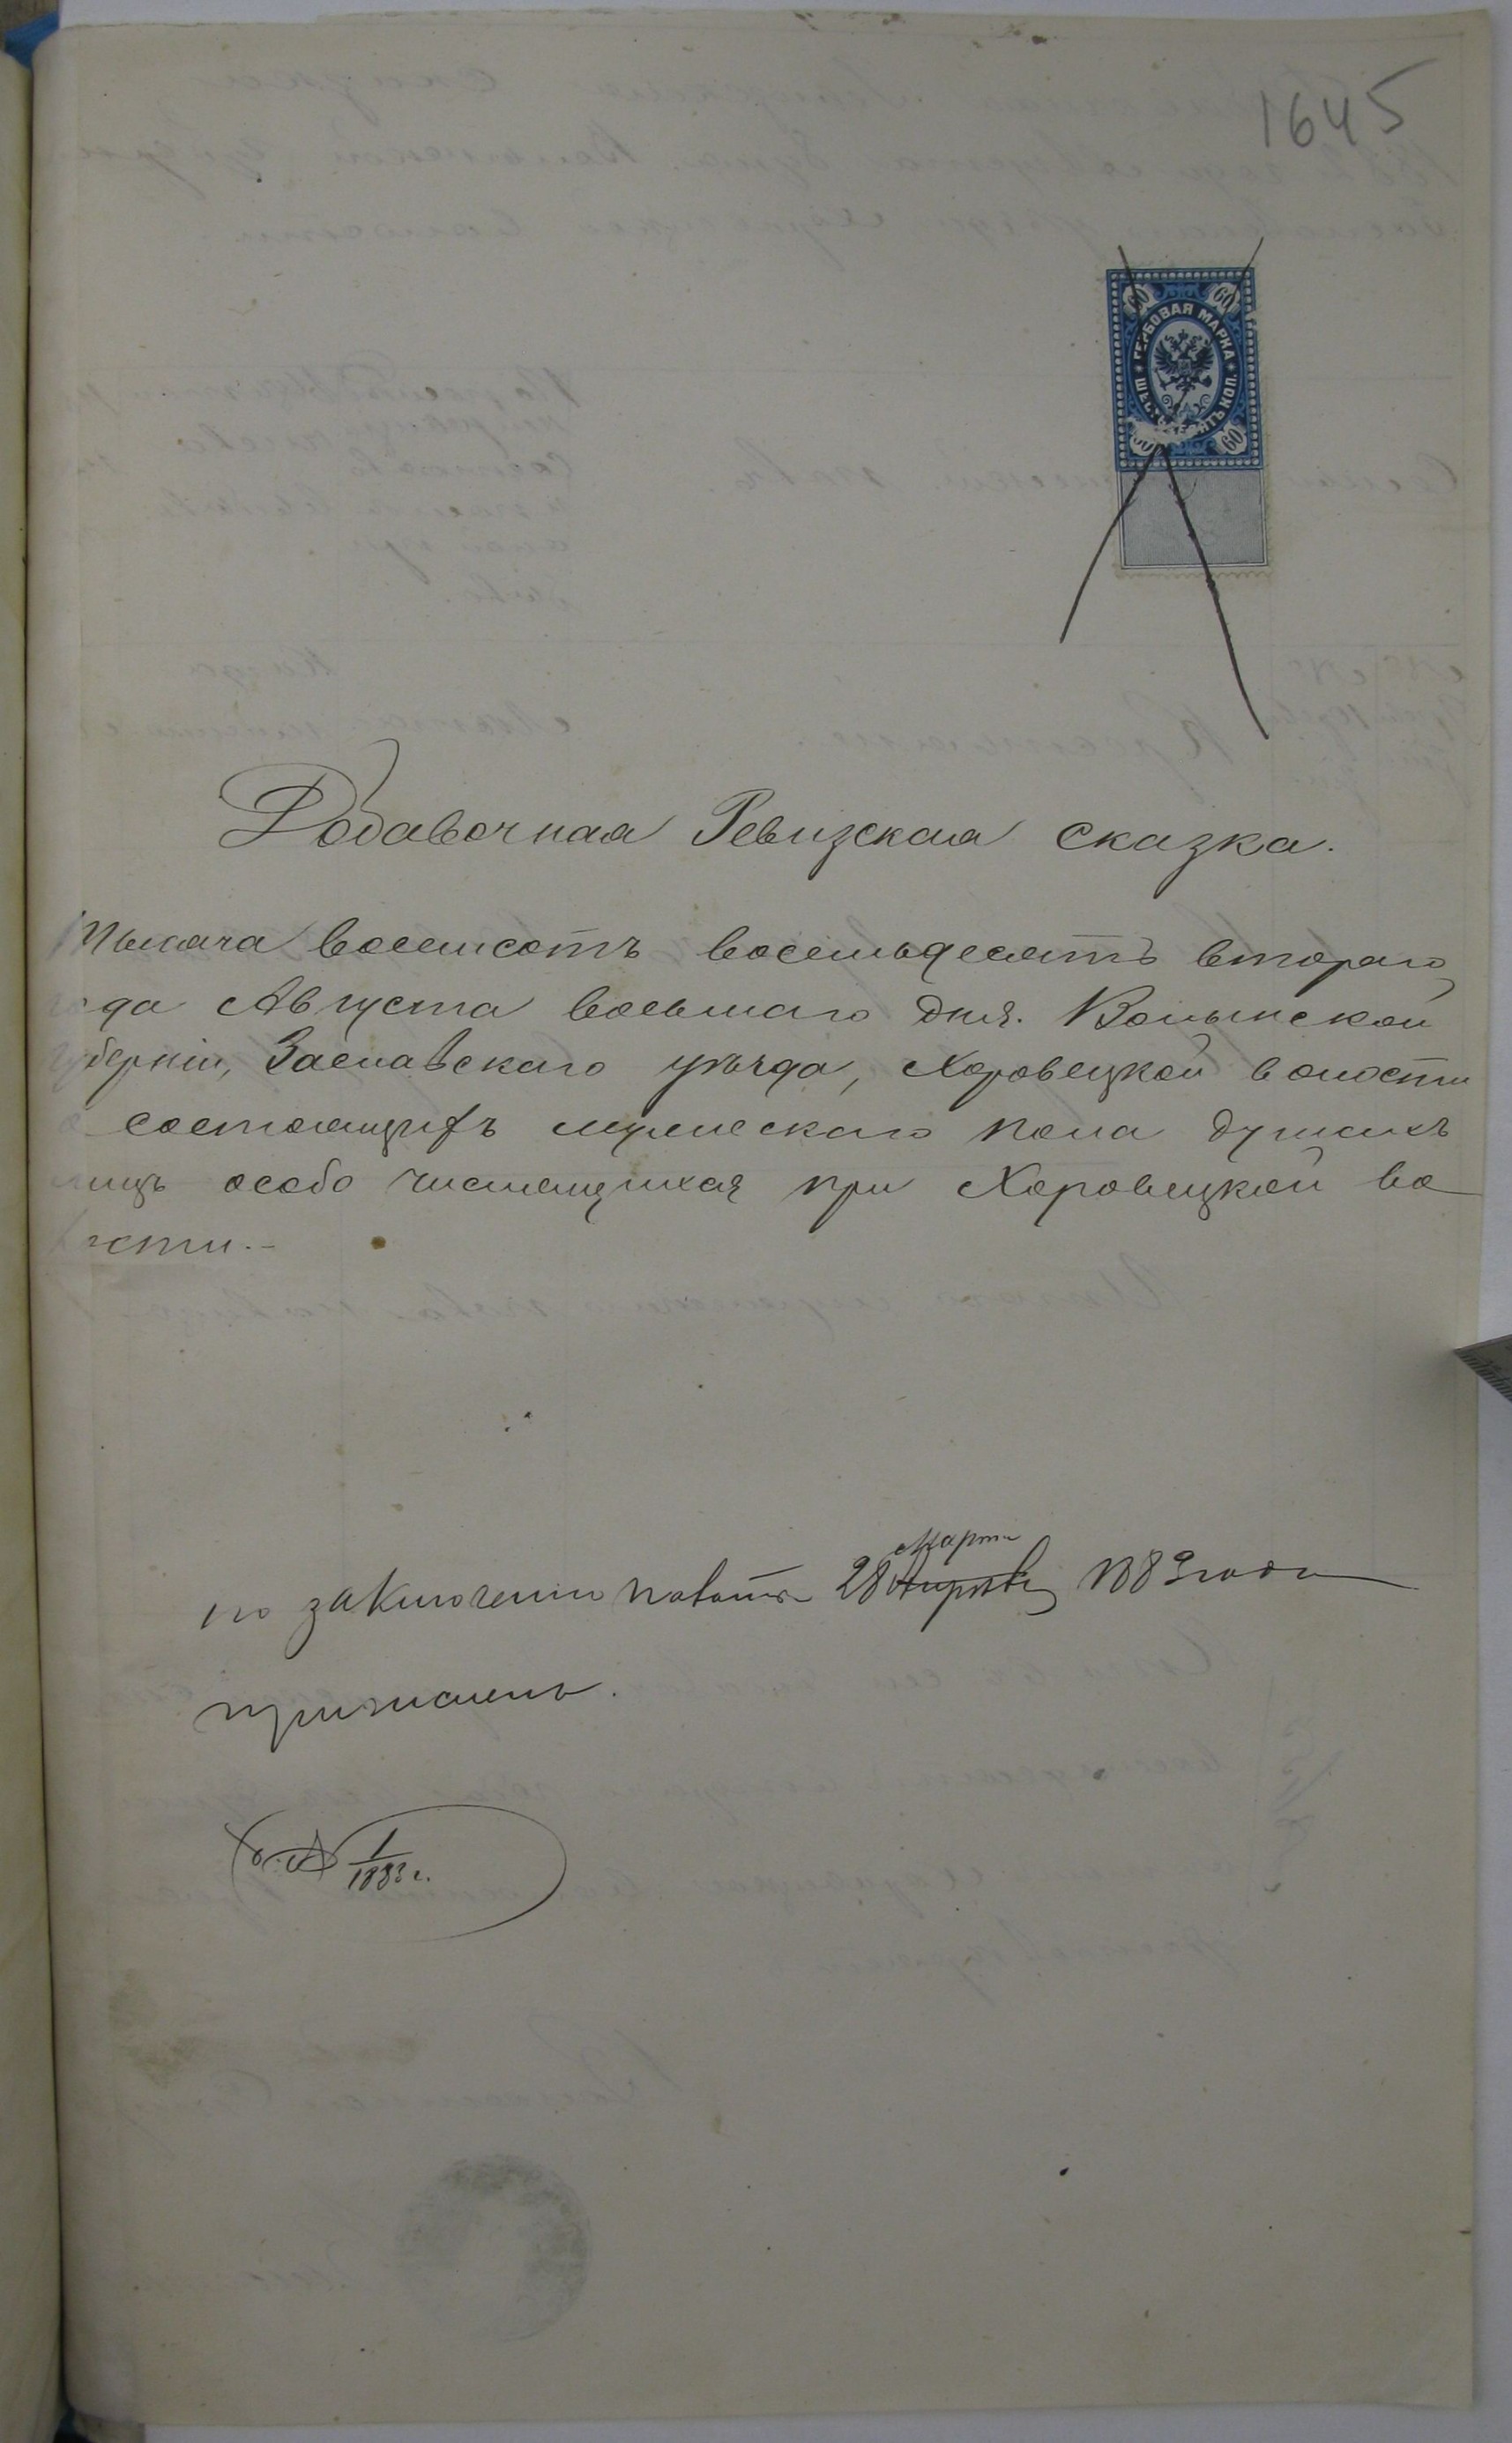 1645
60 60
ГЕРБОВАЯ МАРКА
КОП.
60
Добавочная Ревизская сказка.
Тысяча восемсотъ восемьдесятъ втораго
года Августа восьмаго дня. Волынской
губерніи, Заславскаго уѣзда, Хоровецкой волости
о состоящихъ мужескаго пола душахъ
лицъ особо числящихся при Хоровецкой во
лости.-
Марта
по заключению палаты 28 1883 года
причислены.
1
1883 г.